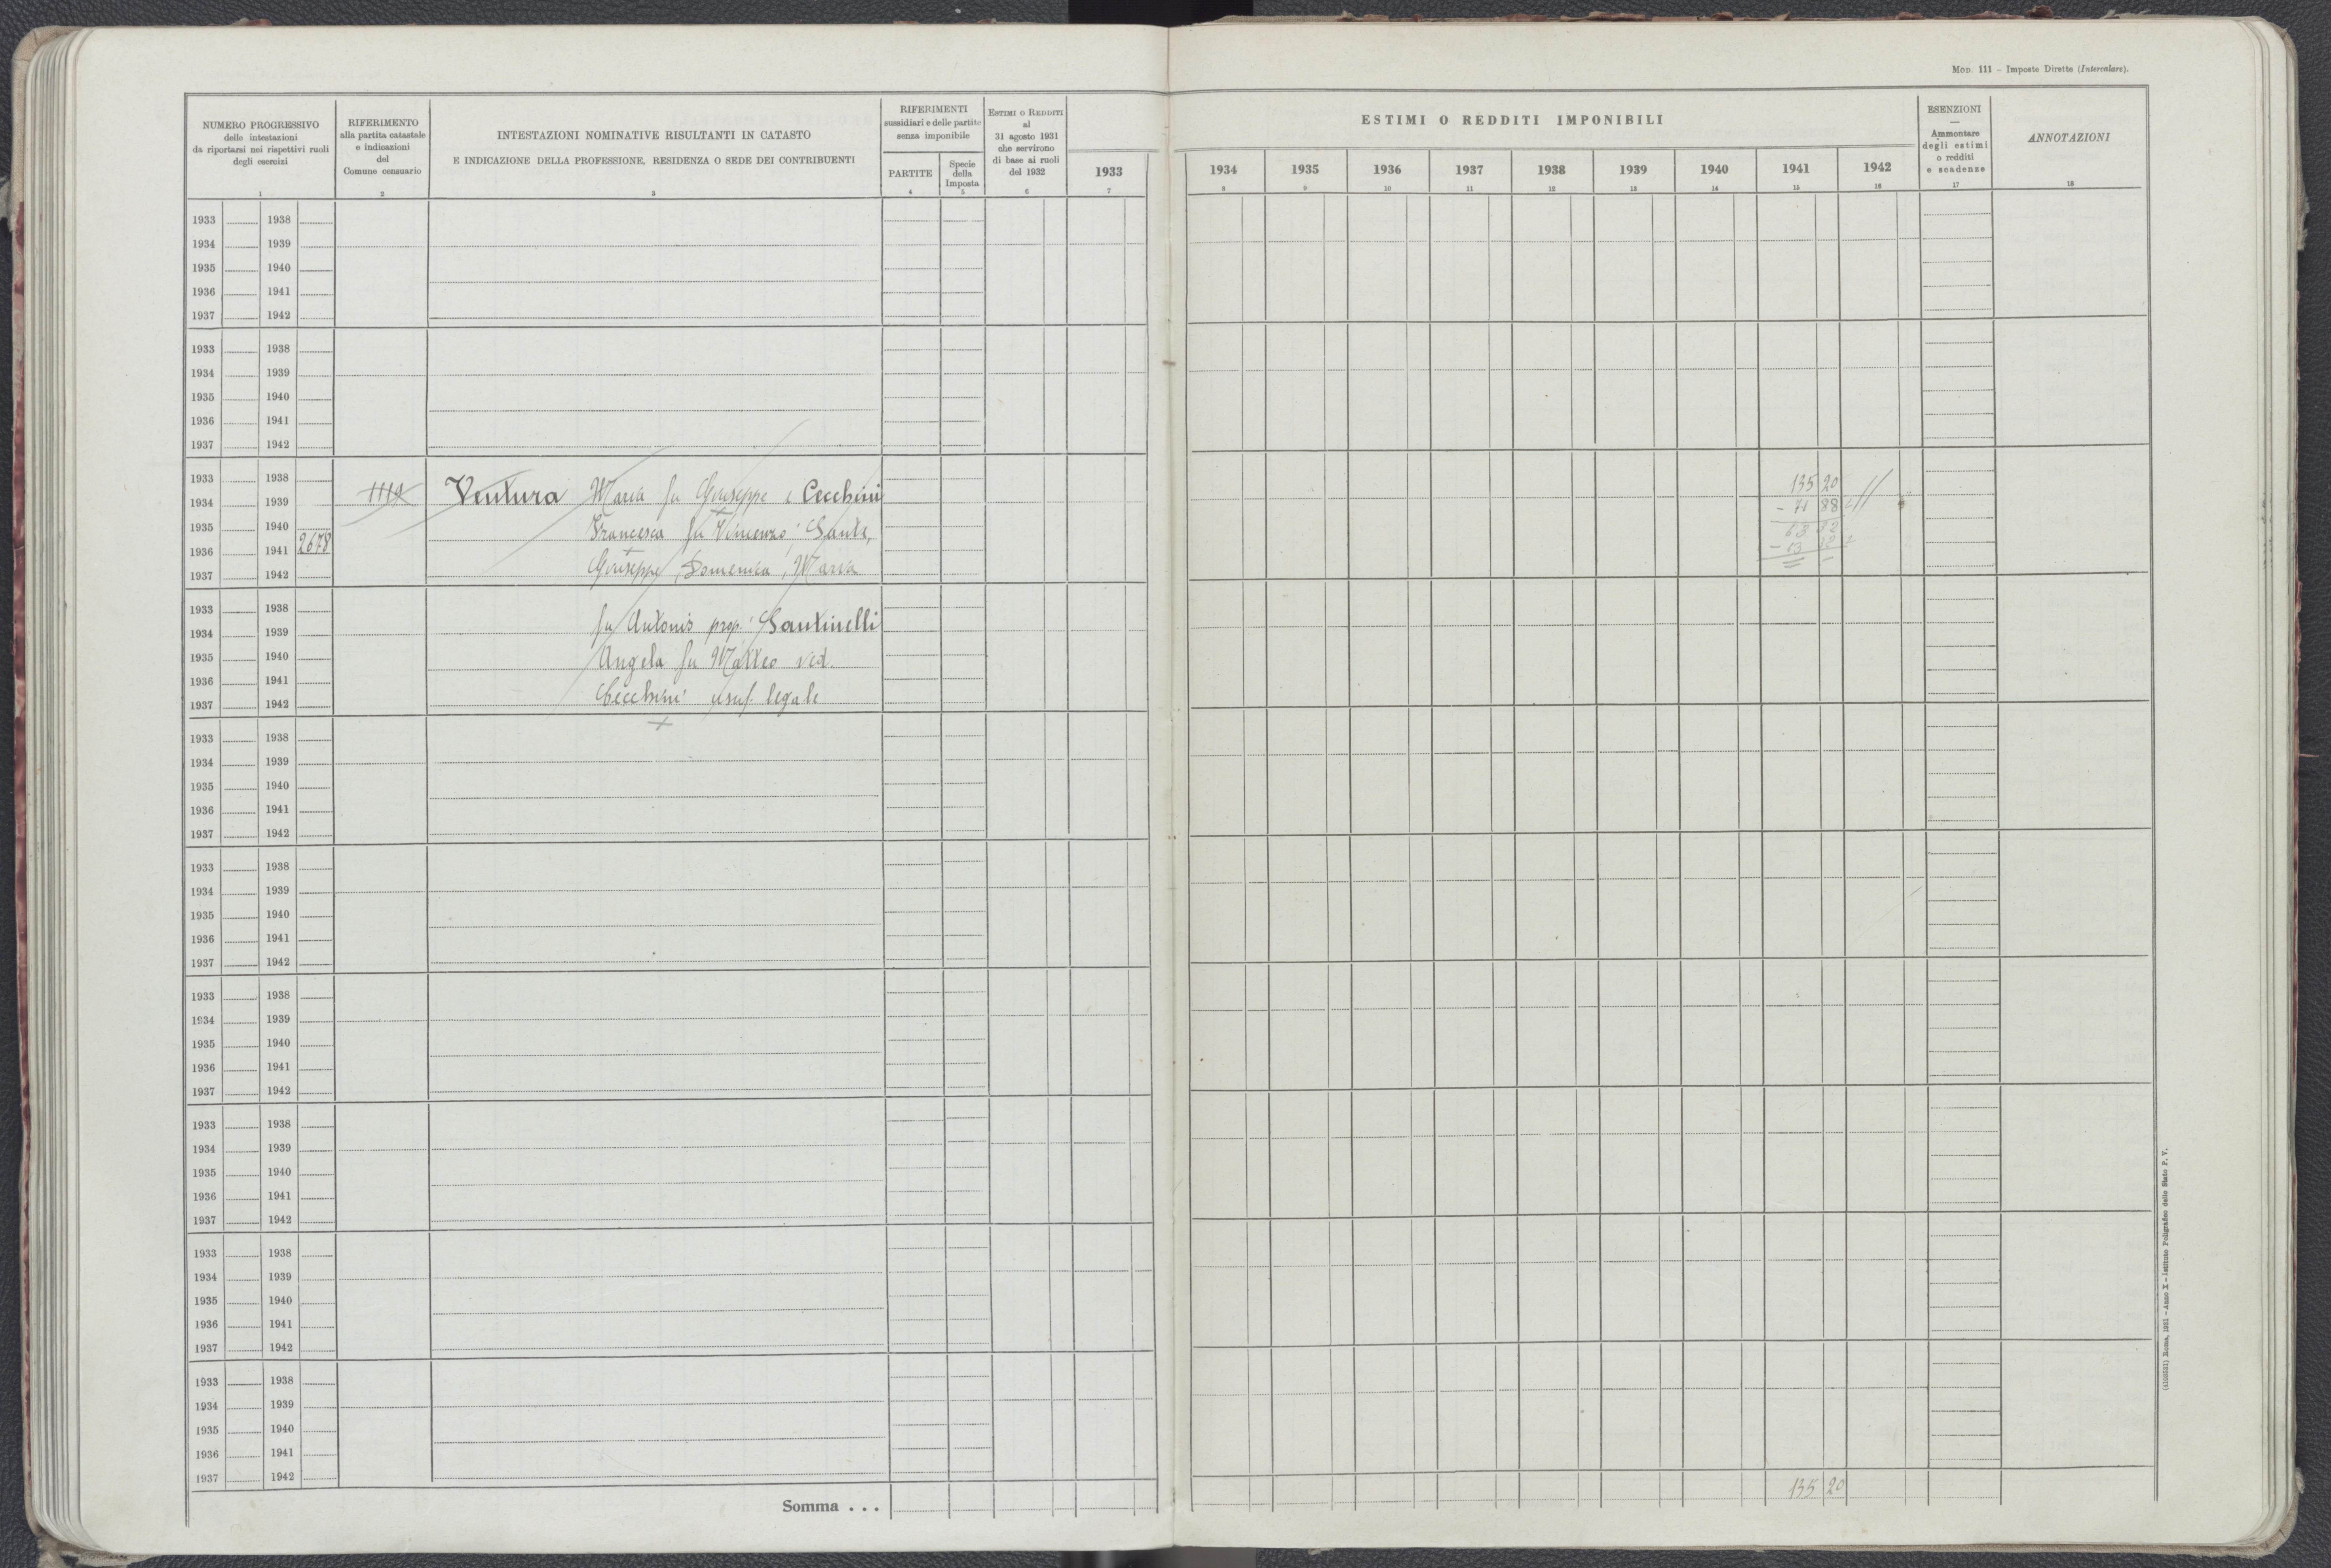 MOD. 111 - Imposte Dirette (Intercalare).
NUMERO PROGRESSIVO
delle intestazioni
da riportarsi nei rispettivi ruoli
degli esercizi
1
RIFERIMENTO
alla partita catastale
e indicazioni
del
Comune censuario
2
INTESTAZIONI NOMINATIVE RISULTANTI IN CATASTO
E INDICAZIONE DELLA PROFESSIONE, RESIDENZA O SEDE DEI CONTRIBUENTI
3
RIFERIMENTI
sussidiari e delle partite
senza imponibile
PARTITE
4
Specie
della
Imposta
5
ESTIMI O REDDITI
al
31 agosto 1931
che servirono
di base ai ruoli
del 1932
6
1933
7
ESTIMI O REDDITI IMPONIBILI
1934 1935 1936 1937 1938 1939 1940 1941 1942
8 9 10 11 12 13 14 15 16
ESENZIONI
—
Ammontare
degli estimi
o redditi
e scadenze
17
ANNOTAZIONI
18
1933 1938
1934 1939
1935 1940
1936 1941
1937 1942
1933 1938
1934 1939
1935 1940
1936 1941
1937 1942
1933 1938 135 20
1934 1939 Ventura Maria fu Giuseppe e Cecchini - 71 88
1935 1940 Francesca fu Vincenzo; Sante, 63 32
1936 1941 2678
1937 1942 Giuseppe, Domenica, Maria
1933 1938
1934 1939 fu Antonio prop.; Santinelli
1935 1940 Angela fu Matteo ved.
1936 1941
1937 1942 Cecchini usuf. legale
1933 1938
1934 1939
1935 1940
1936 1941
1937 1942
1933 1938
1934 1939
1935 1940
1936 1941
1937 1942
1933 1938
1934 1939
1935 1940
1936 1941
1937 1942
1933 1938
1934 1939
1935 1940
1936 1941
1937 1942
1933 1938
1934 1939
1935 1940
1936 1941
1937 1942
1933 1938
1934 1939
1935 1940
1936 1941
1937 1942
Somma . . . 135 20
Roma, 1931 - Anno X - Istituto Poligrafico dello Stato P. V.